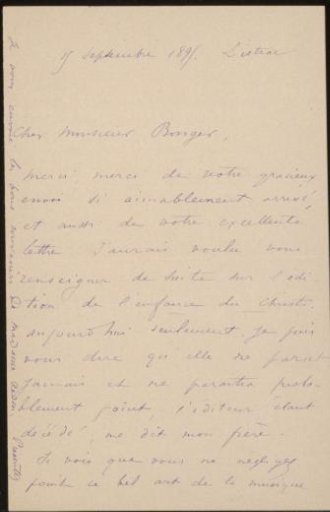 15 Septembre 189 . Listrac
Cher Monsieur Bonger,
merci, merci de votre gracieux
envoi si aimablement arrivé,
et aussi de votre excellente
lettre. J'aurais voulu vous
renseigner de suite sur l'édi
tion de l'enfance du Christ,
aujourd'hui seulement je puis
vous dire qu'elle ne parait
jamais et ne paraîtra proba
blement point, l'éditeur étant
décédé, me dit mon frère.
Je vois que vous ne négligez
point ce bel art de la musique
Je vous envoie les bons souvenirs de Madame Redon